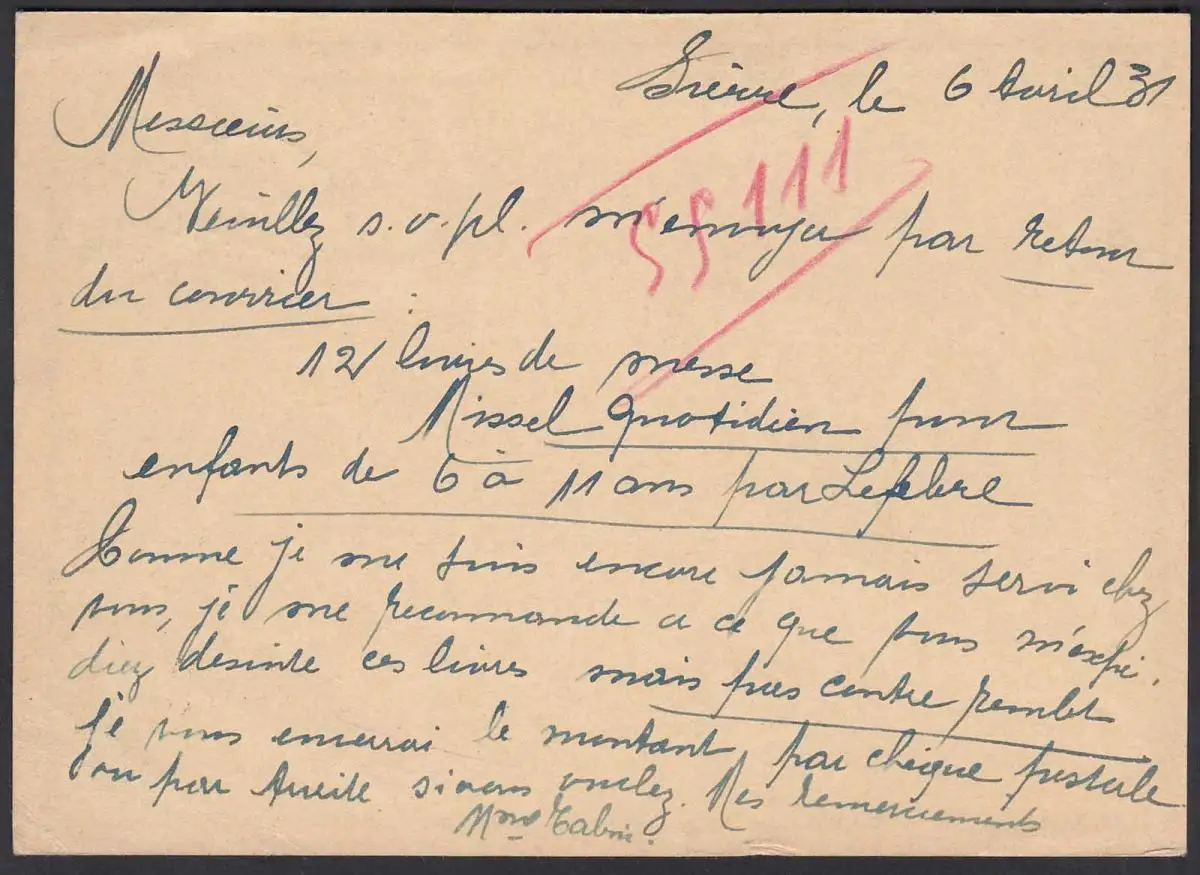 Sierre, le 6 Avril 31
Messieurs,
55111
Veuillez s.v.pl. m'envoyer par retour
du courrier :
12 livres de messe
Missel Quotidien pour
enfants de 6 à 11 ans par Lefebre
Comme je me suis encore jamais servi chez
vous, je me recommande a ce que vous m'éxpé-
diez desuite ces livres mais pas contre rembt
Je vous enverrai le montant par chèque postale
ou par traite si vous voulez. Mes remerciements
Mme